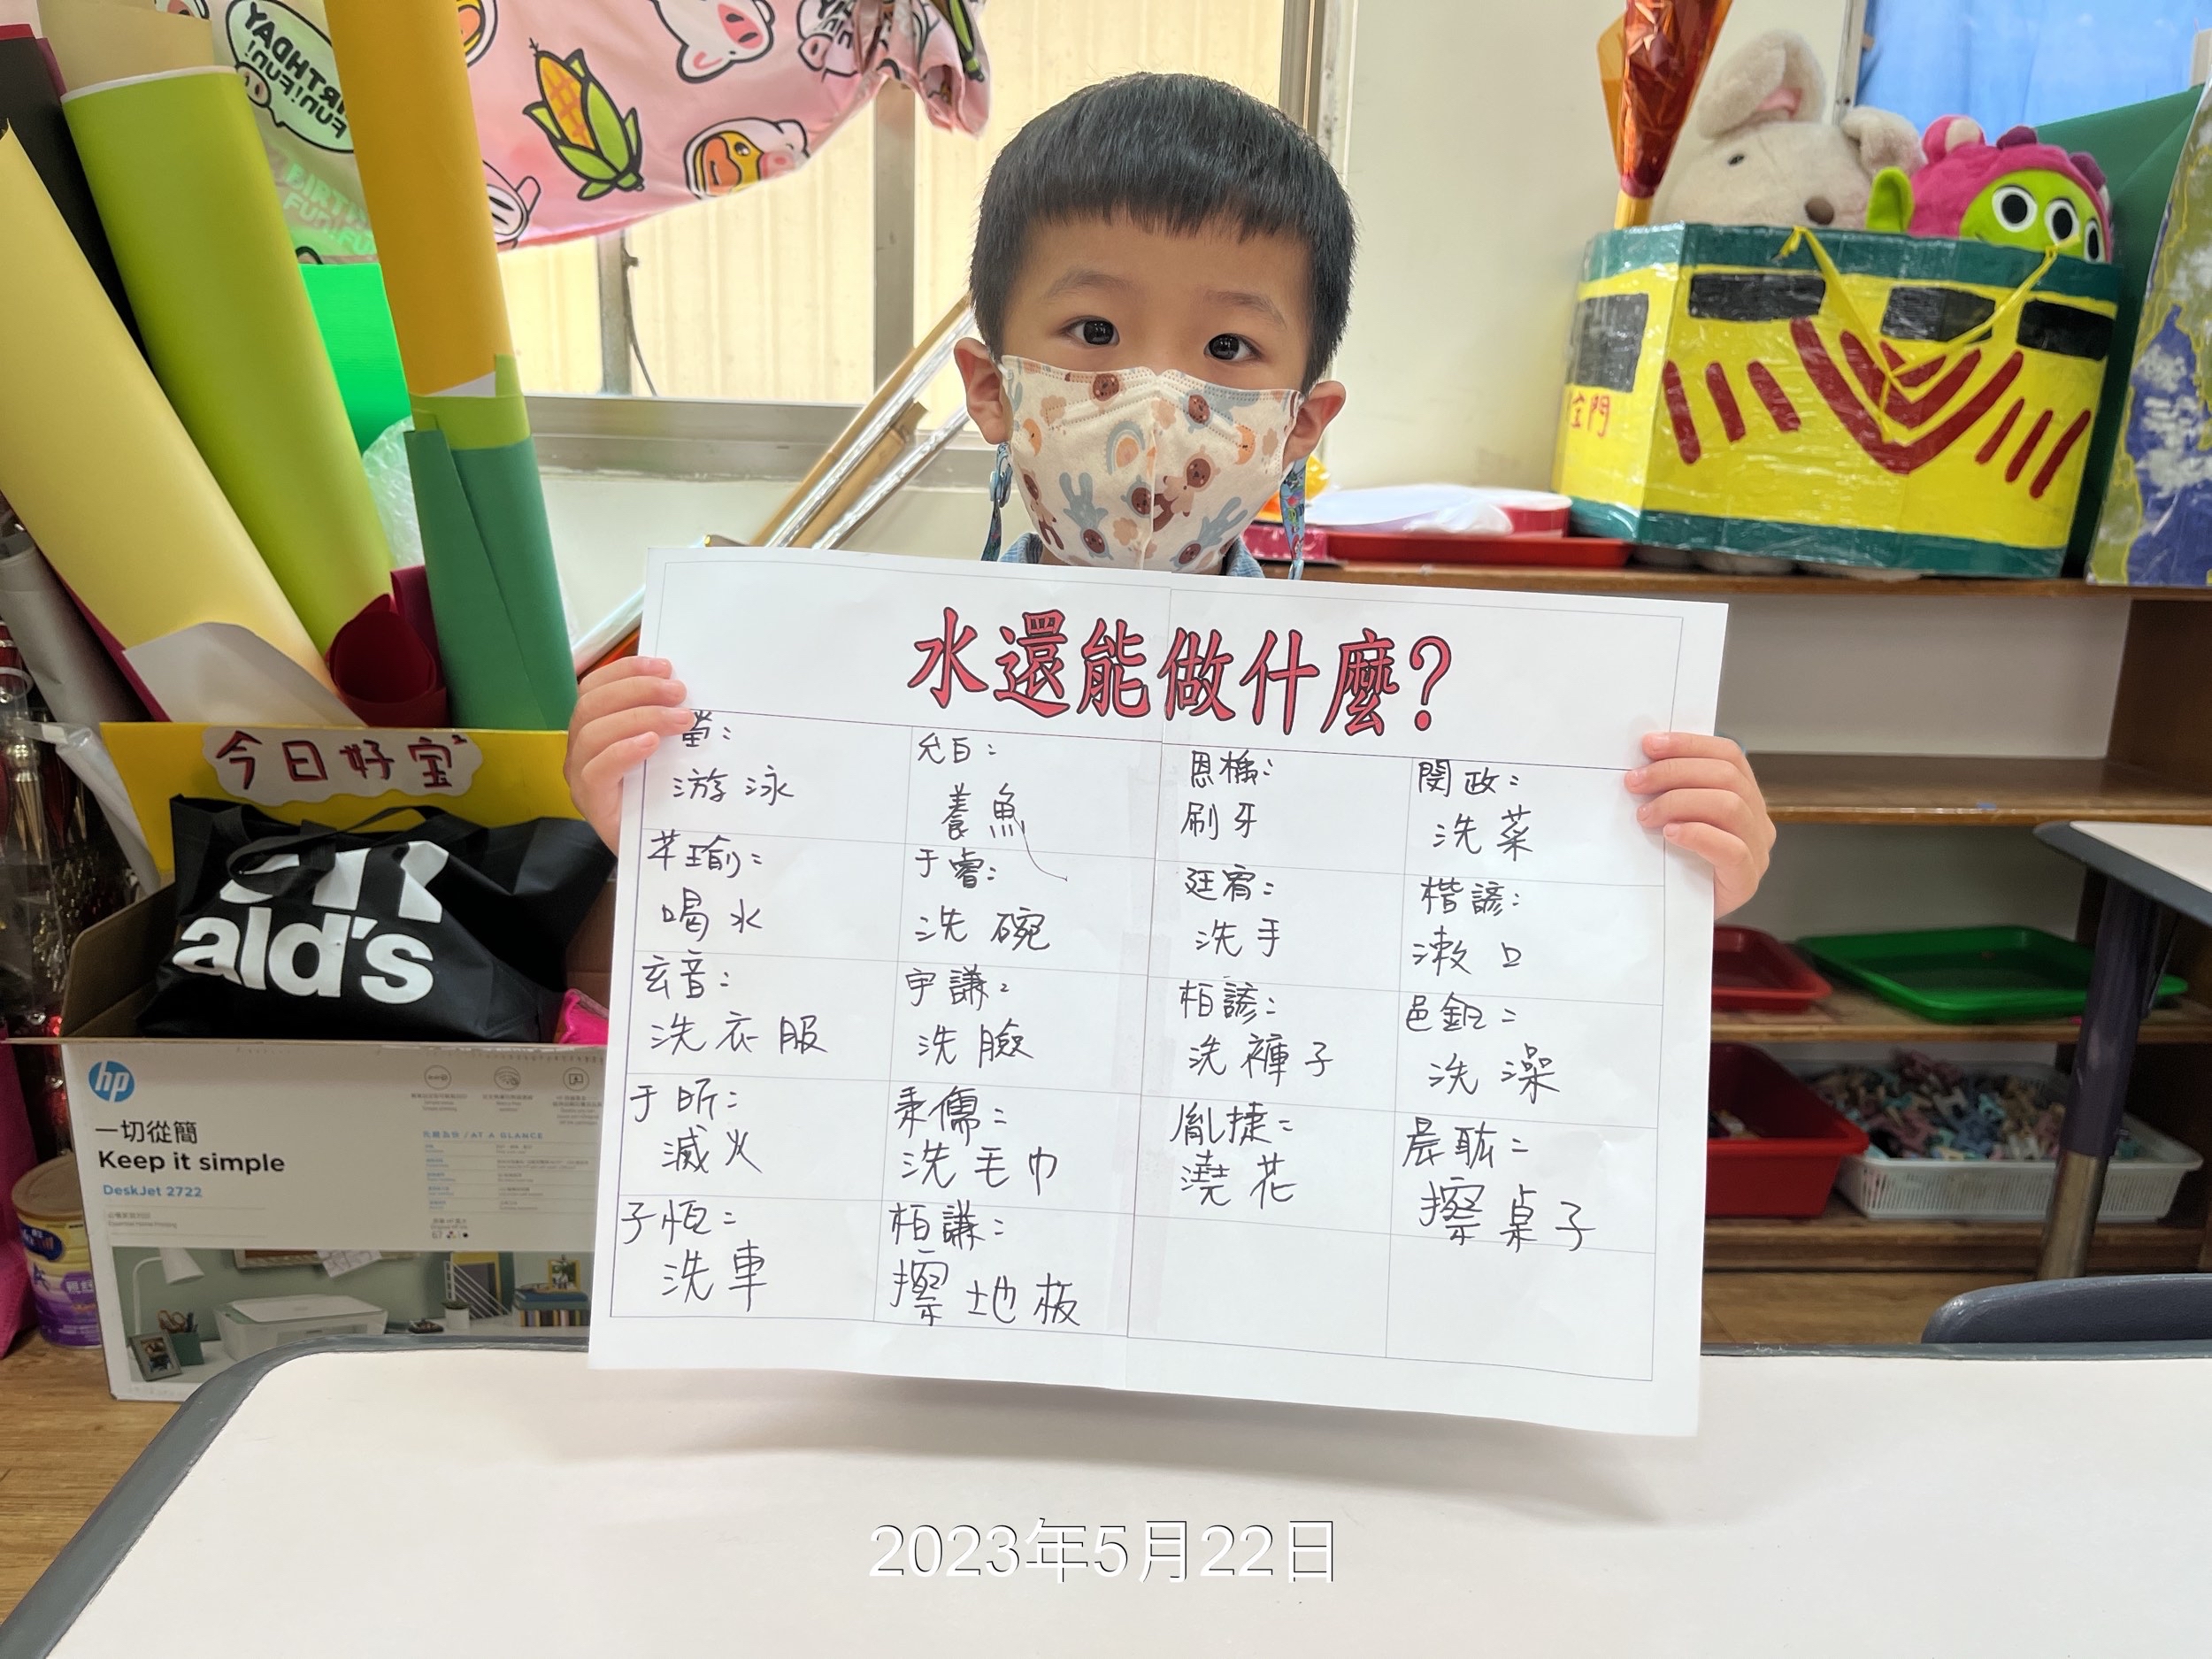 BIRTHDAY
FUN!FUN!
水還能做什麼?
游泳
允白:
養魚
恩橋:
刷牙
閔政:
洗菜
苹瑜:
喝水
于睿:
洗碗
廷宥:
洗手
楷諺:
漱口
玄音:
洗衣服
宇謙:
洗臉
柏諺:
洗褲子
邑鉅:
洗澡
于昕:
滅火
秉儒:
洗毛巾
胤捷:
澆花
晨耾:
擦桌子
子恆:
洗車
柏謙:
擦地板
今日好宝²
ald's
hp
一切從簡
Keep it simple
DeskJet 2722
先睹為快 / AT A GLANCE
2023年5月22日